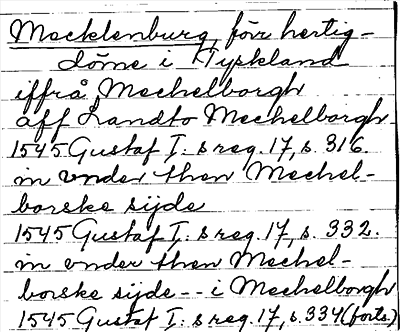 Mecklenburg, förr hertig-
döme i Tyskland
iffrå Mechelborgh
aff Landto Mechelborgh
1545 Gustaf I:s reg. 17, s. 316.
in vnder then Mechel-
borske sijde
1545 Gustaf I:s reg. 17, s. 332.
in vnder then Mechel-
borske sijde -- i Mechelborgh
1545 Gustaf I:s reg. 17, s. 334 (forts.)